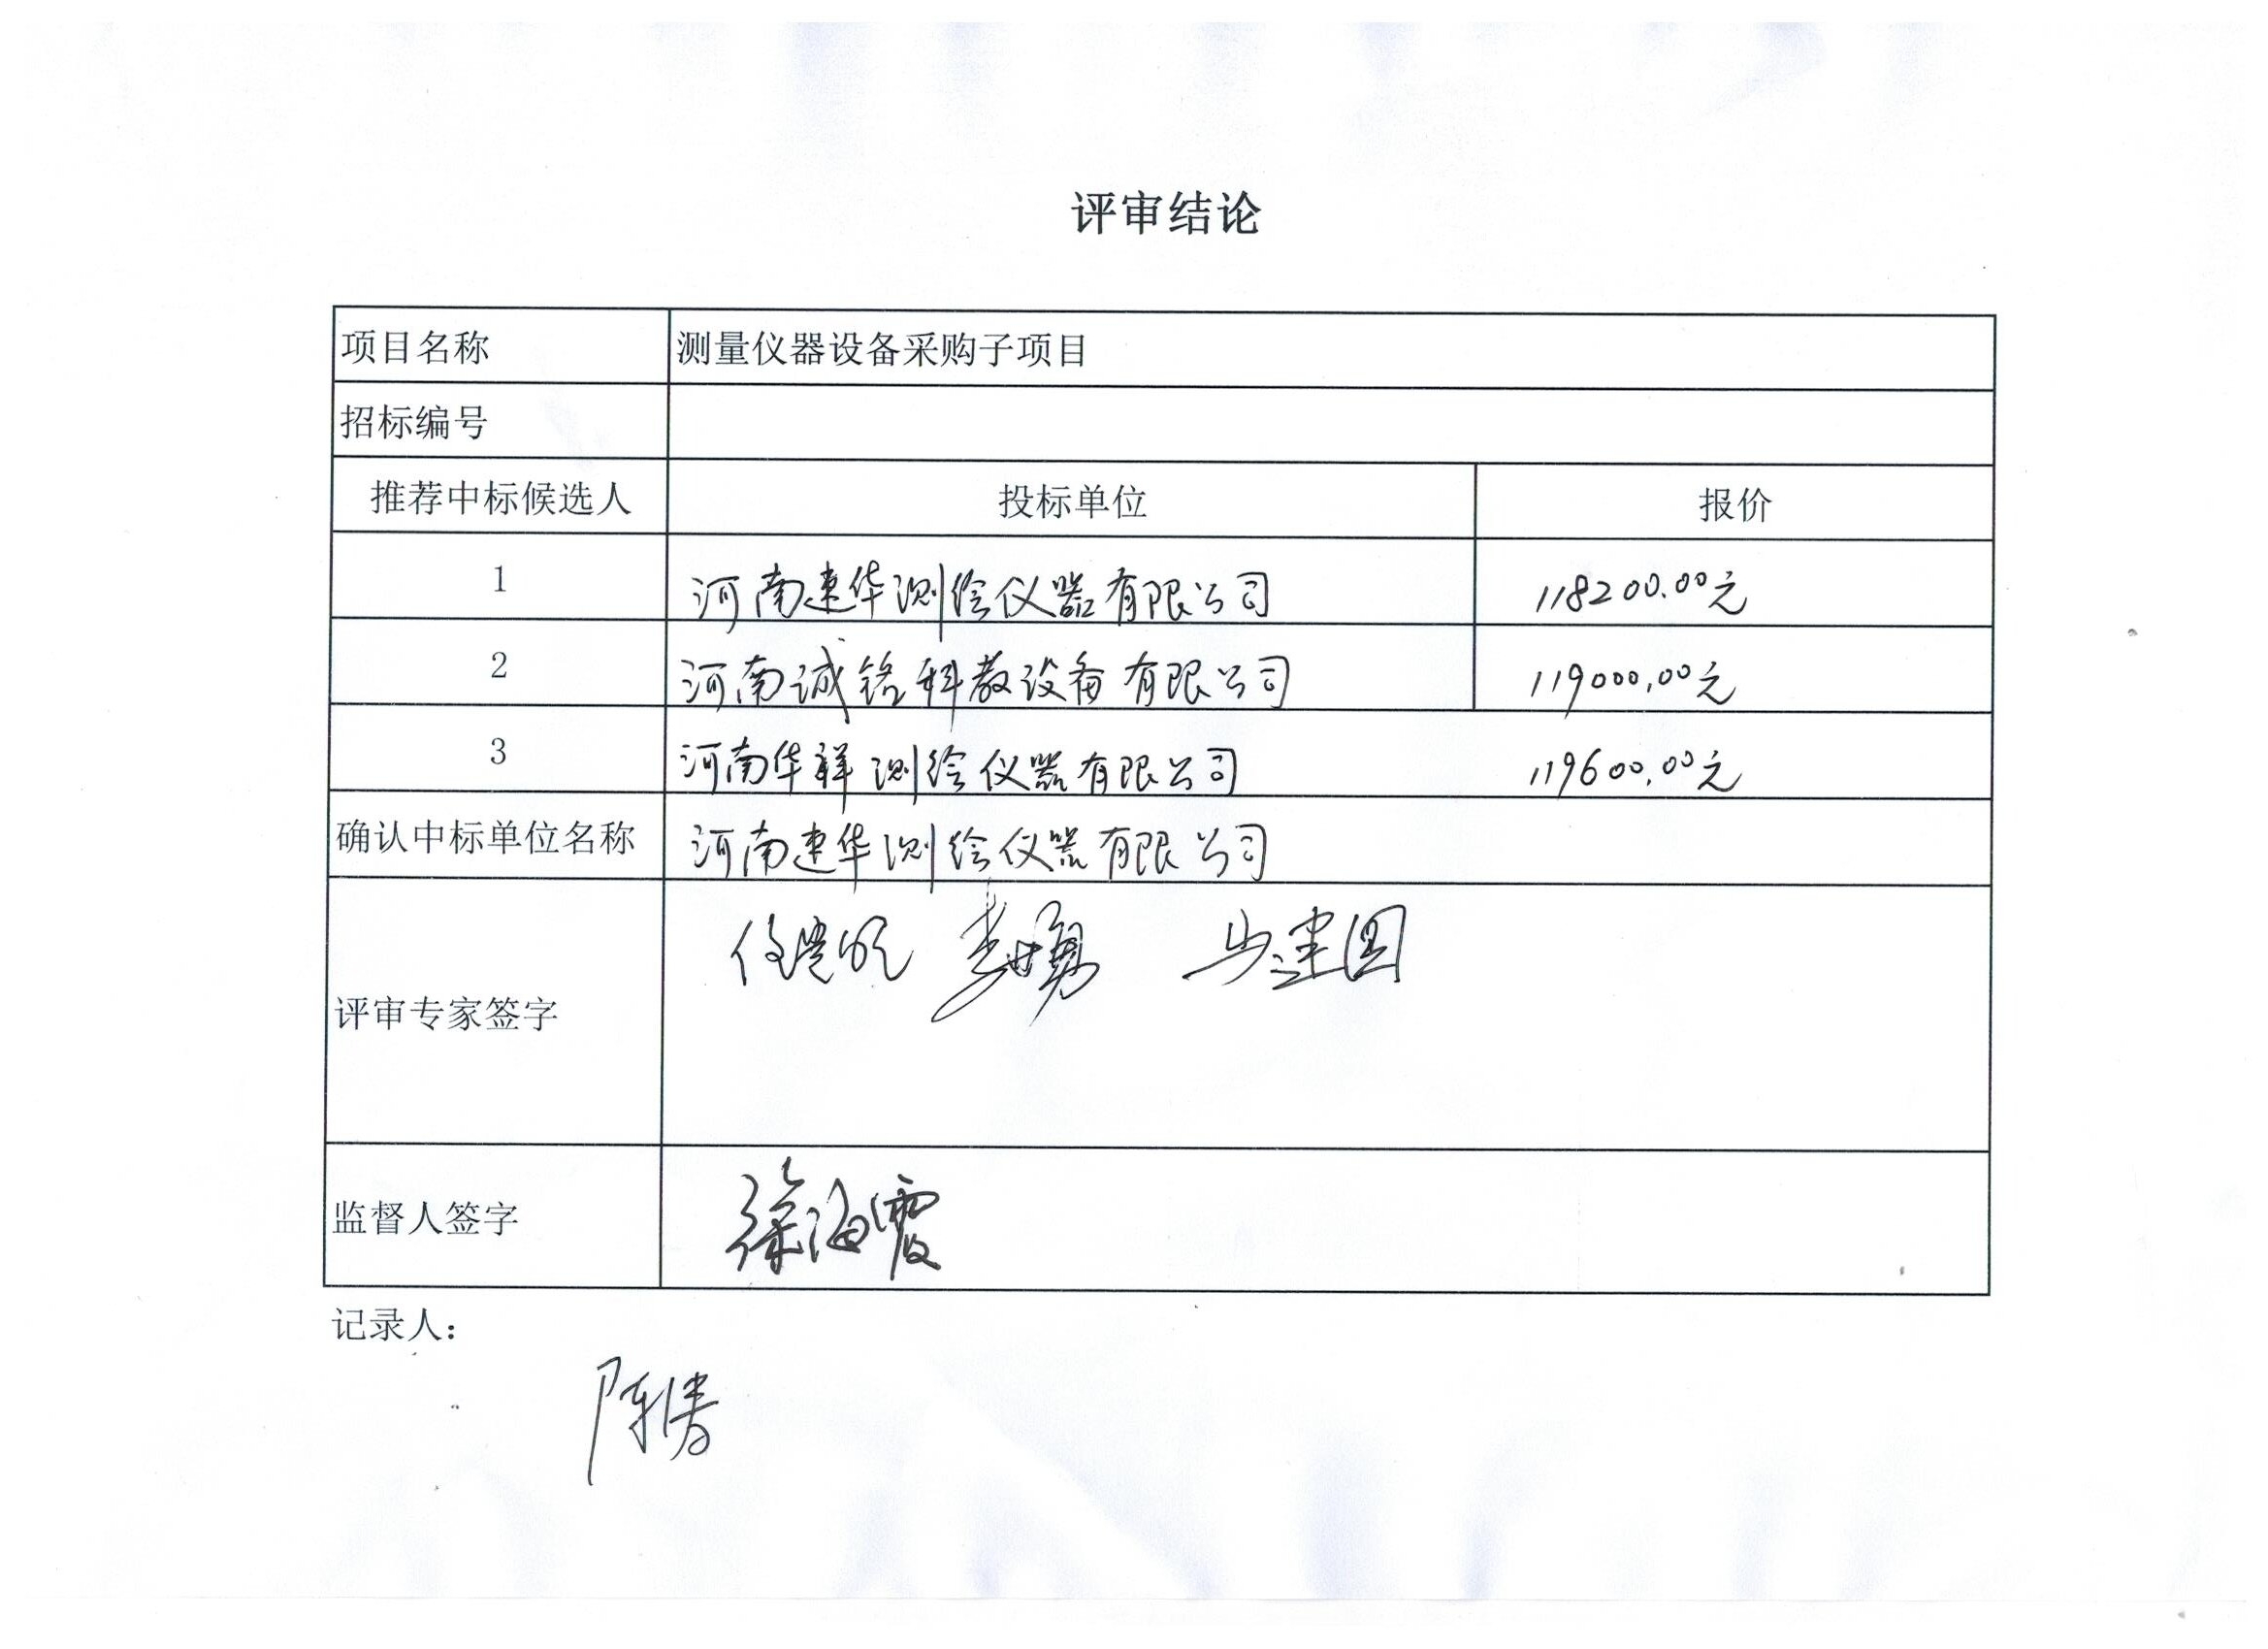 评审结论
项目名称 测量仪器设备采购子项目
招标编号
推荐中标候选人 投标单位 报价
1 河南建华测绘仪器有限公司 118200.00元
2 河南诚铭科教设备有限公司 119000.00元
3 河南华祥测绘仪器有限公司 119600.00元
确认中标单位名称 河南建华测绘仪器有限公司
评审专家签字 马建国
监督人签字 徐海霞
记录人：